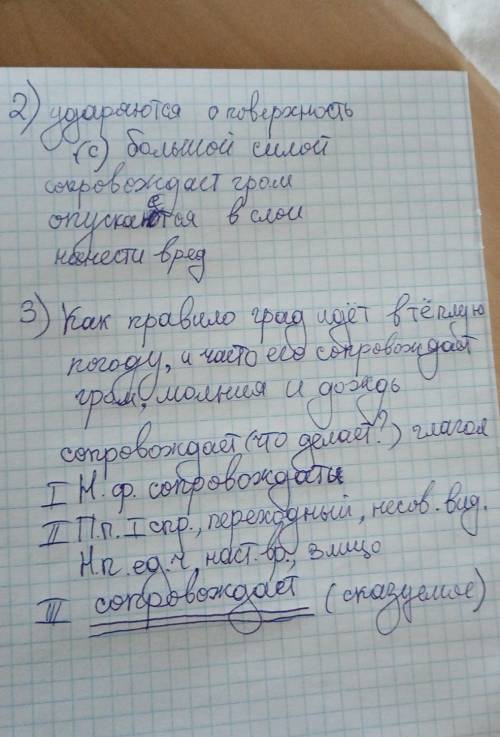 2) ударяются о поверхность
(с) большой силой
сопровождает гром
опускается в слои
нанести вред
3) Как правило град идёт в тёплую
погоду, и часто его сопровождает
гром, молния и дождь
сопровождает (что делает?) глагол
I Н.ф. сопровождать
II П.п. I спр., переходный, несов. вид.
Н.п. ед.ч, наст.вр., 3 лицо
III сопровождает (сказуемое)